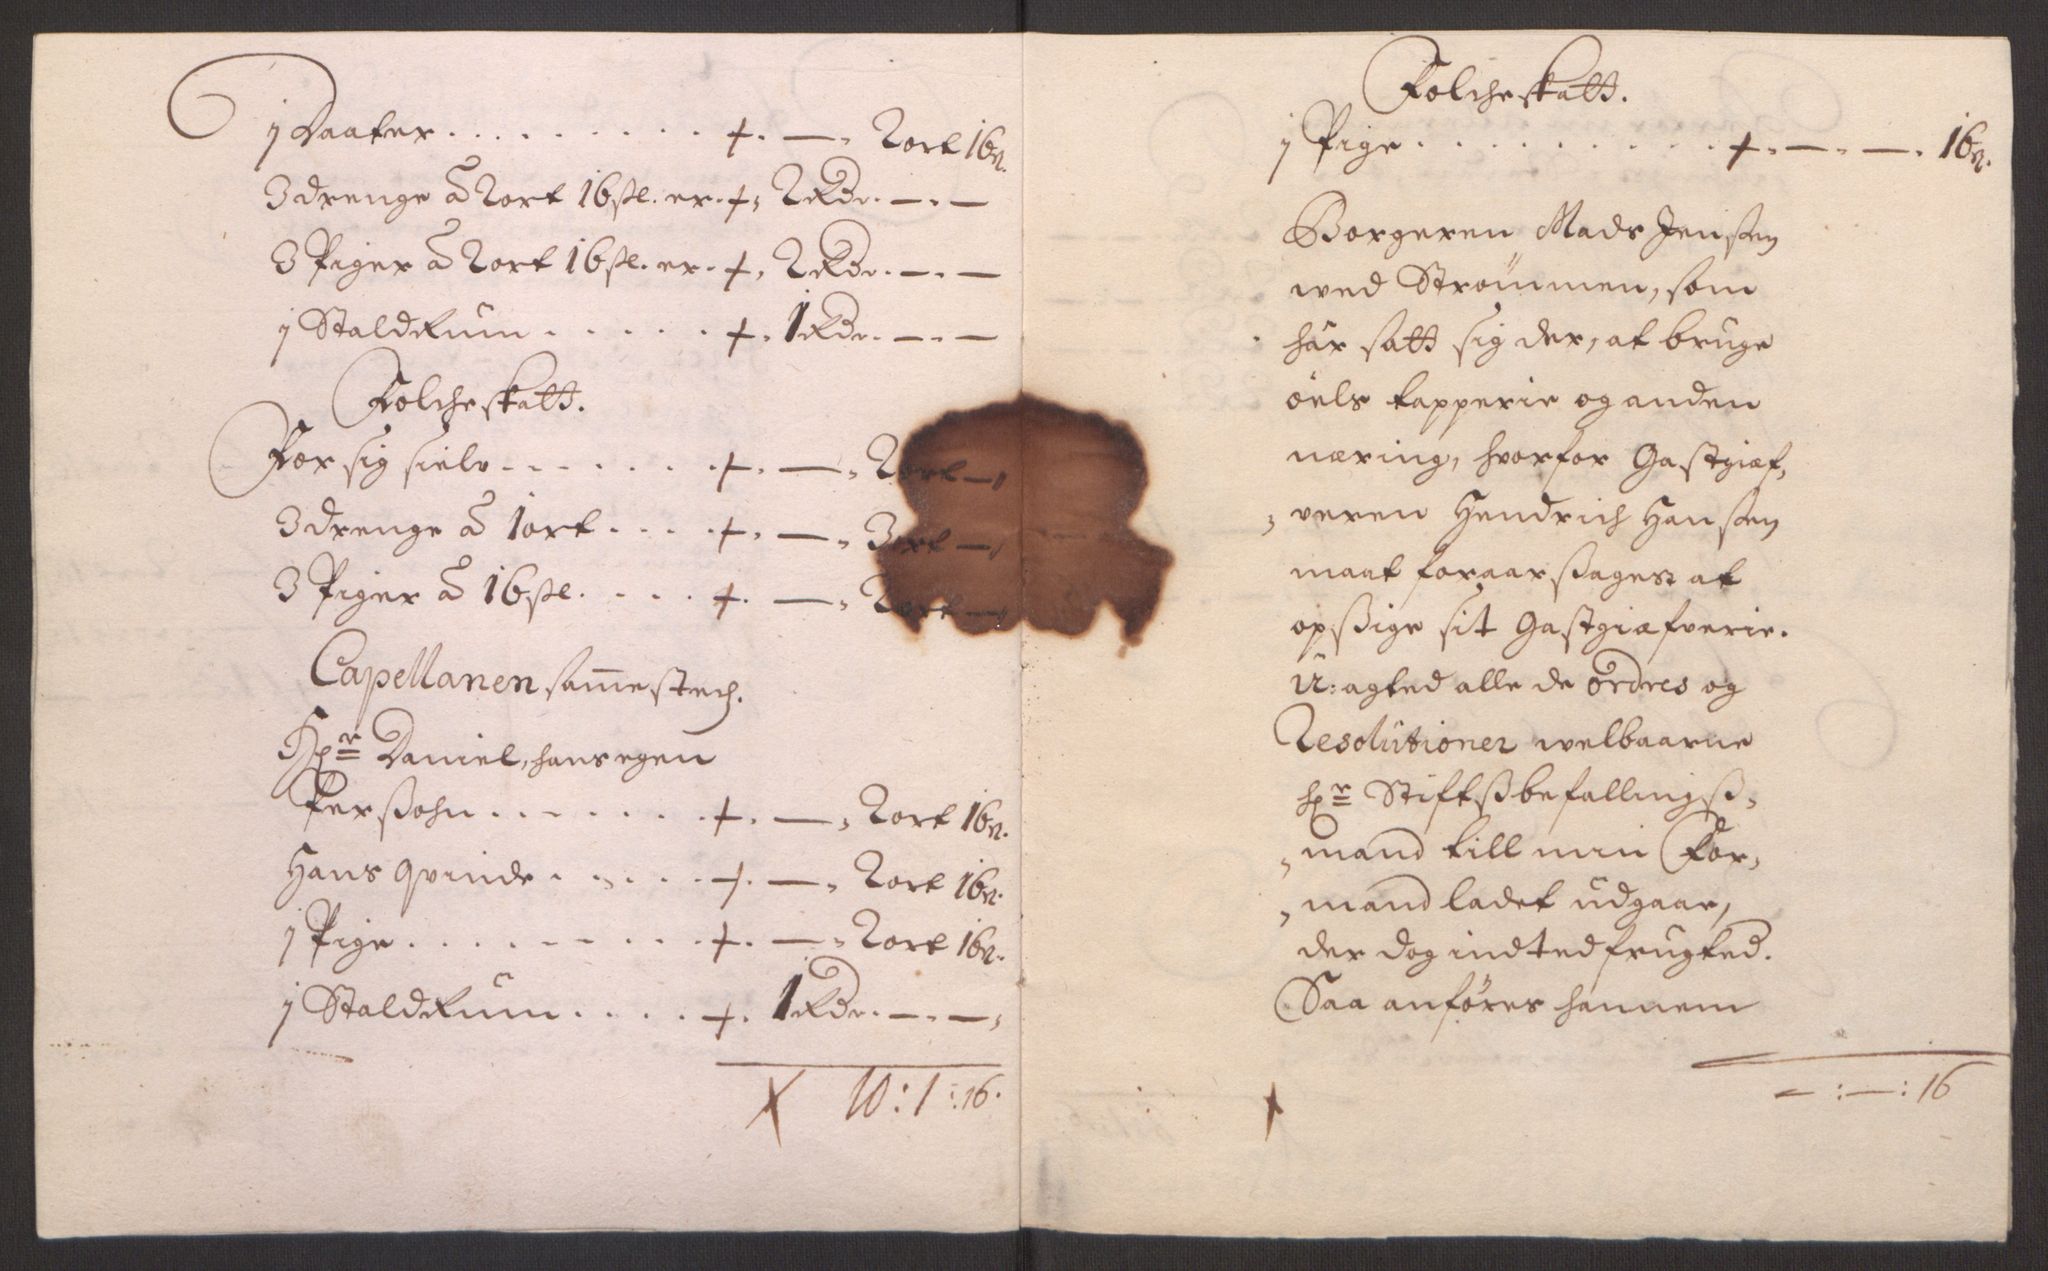 j Daater . . . . . . . . . +. — " 2 ort 16 s.
3 drenge á 2 ort 16 skl. er . + " 2 Rdr. — " —
3 Piger á 2 ort 16 skl. er . + " 2 Rdr. — " —
j Staldrum . . . . . +. 1 Rdr. — " —
Folcheskatt.
For sig sielv . . . . . . . +. — " 2 ort —
3 drenge á 1 ort . . . . +. — " 3 ort —
3 Piger á 16 skl. . . . . +. — " 2 ort —
Capellanen sam̄estedz.
Hr Daniel, hans egen
Perssohn . . . . . . . +. — " 2 ort 16 s.
Hans qvinde . . . . . +. — " 2 ort 16 s.
j Pige . . . . . . . . . +. — " 2 ort 16 s.
j Staldrum . . . . . +. 1 Rdr. — " —
10 : 1 : 16.
Folcheskatt.
j Pige . . . . . . . . . . +. — " — " 16 s.
Borgeren Mads Jenssen
wed Strømmen, som
har satt sig der, at bruge
öels tapperie og anden
næring, hvorfor Gastgiæf-
veren Hendrich Hanssen
maat foraarssages at
opssige sit Gastgiæfverie.
U: agted alle de ordres og
Resolutioner welbaarne
hr Stiftssbefallingss-
mand till min For-
mand ladet udgaar,
der dog indted frugted.
Saa anföres hannem
— : — : 16